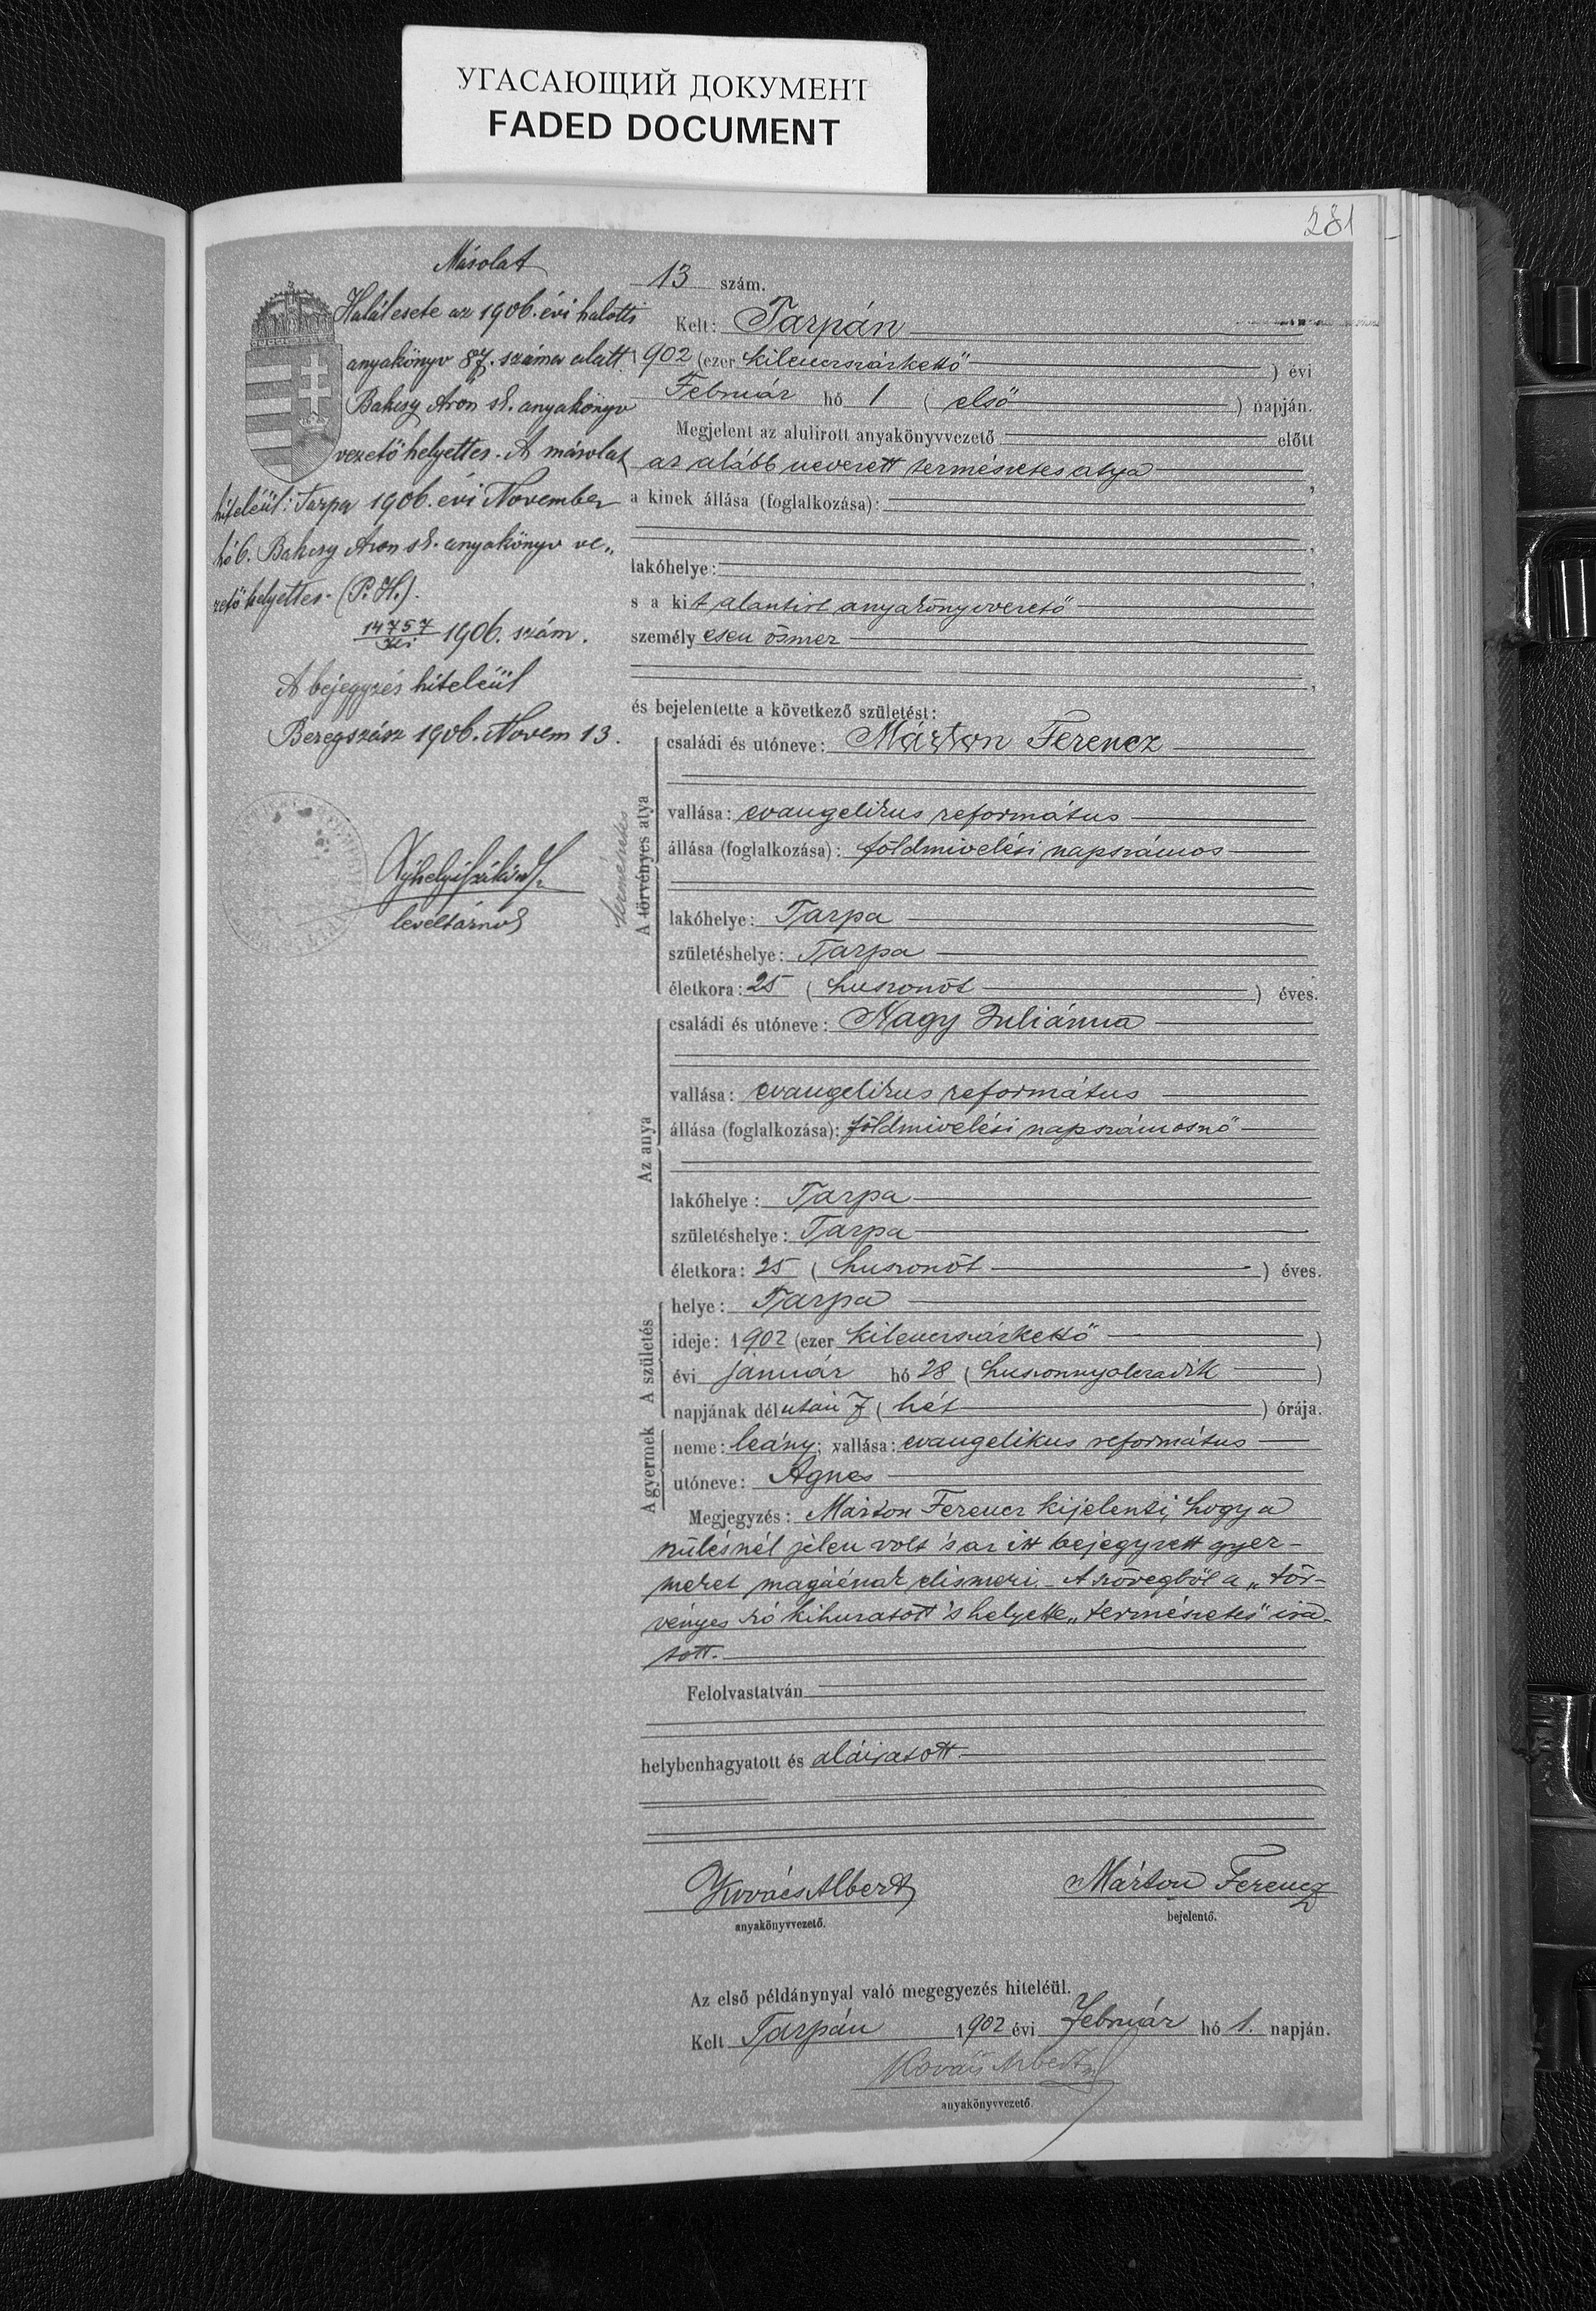 УГАСАЮЩИЙ ДОКУМЕНТ
FADED DOCUMENT
281
Másolat
Halálesete az 1906. évi halotti
anyakönyv 87. száma alatt.
Bakcsy Áron sk. anyakönyv
vezető helyettes. A másolat
hiteléül: Tarpa 1906. évi November
hó 6. Bakcsy Áron sk. anyakönyv ve„
zető helyettes. (P. H.).
14757 1906. szám.
A bejegyzés hiteléül
Beregszász 1906. Novem 13.
levéltárnok
13 szám.
Kelt: Tarpán
1902 (ezer kilenczszázkettő ) évi
Február hó 1 ( első ) napján.
Megjelent az alulirott anyakönyvvezető előtt
az alább nevezett természetes atya ,
a kinek állása (foglalkozása):
,
lakóhelye: ,
s a kit alantirt anyakönyvvezető
személyesen ösmer
,
és bejelentette a következő születést:
A törvényes atya
természetes
családi és utóneve: Márton Ferencz
vallása: evangelikus református
állása (foglalkozása): földmivelési napszámos
lakóhelye: Tarpa
születéshelye: Tarpa
életkora: 25 ( huszonöt ) éves.
Az anya
családi és utóneve: Nagy Juliánna
vallása: evangelikus református
állása (foglalkozása): földmivelési napszámosnő
lakóhelye: Tarpa
születéshelye: Tarpa
életkora: 25 ( huszonöt ) éves.
A születés
helye: Tarpa
ideje: 1902 (ezer kilenczszázkettő )
évi január hó 28 ( huszonnyolczadik )
napjának délután 7 ( hét ) órája.
A gyermek
neme: leány; vallása: evangelikus református
utóneve: Ágnes
Megjegyzés: Márton Ferencz kijelenti, hogy a
szülésnél jelen volt 's az itt bejegyzett gyer-
meket magáénak elismeri. A szövegből a „tör-
vényes szó kihuzatott 's helyette „természetes" ira-
tott.
Felolvastatván
helybenhagyatott és aláiratott.
Kovács Albert
anyakönyvvezető.
Márton Ferencz
bejelentő.
Az első példánynyal való megegyezés hiteléül.
Kelt Tarpán 1902 évi Február hó 1. napján.
Kovács Albert
anyakönyvvezető